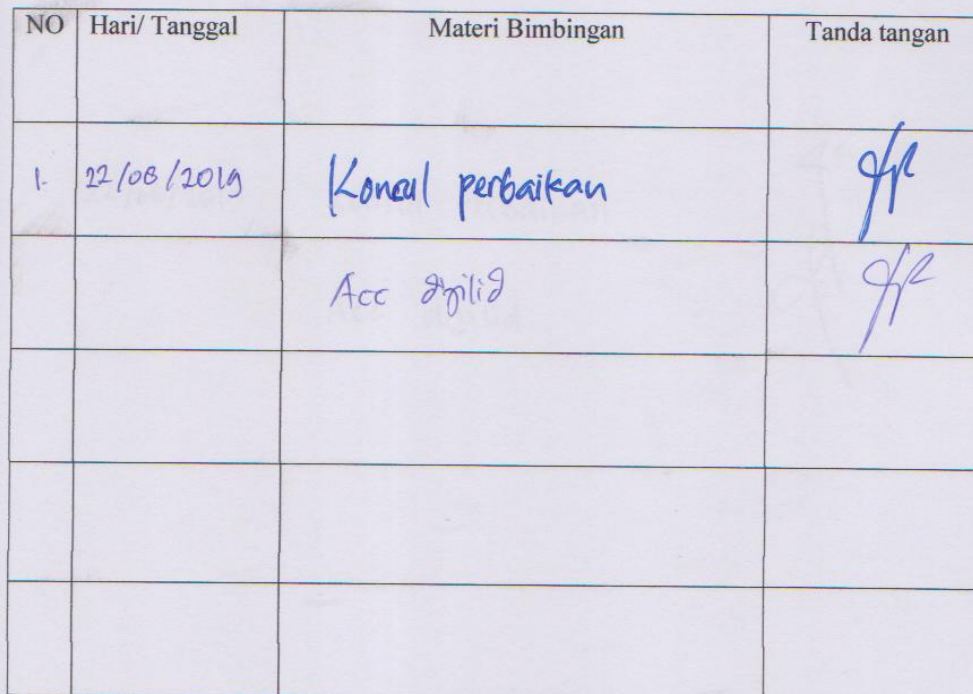 NO Hari/ Tanggal Materi Bimbingan Tanda tangan
1. 22/08/2019 Konsul perbaikan
Acc dijilid